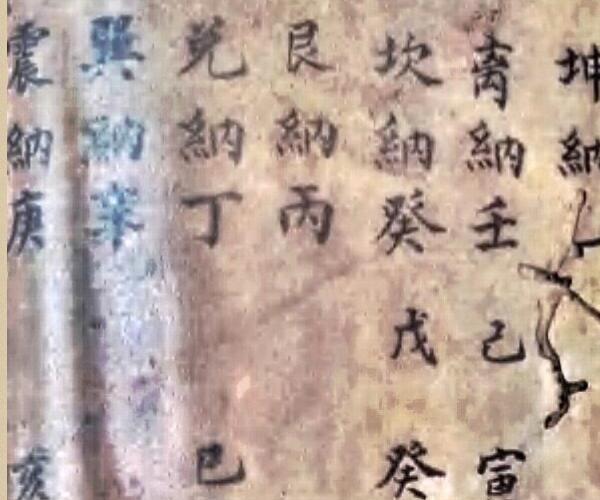 坤納
离納壬己
坎納癸戊癸
艮納丙
兌納丁巳
巽納辛
震納庚亥